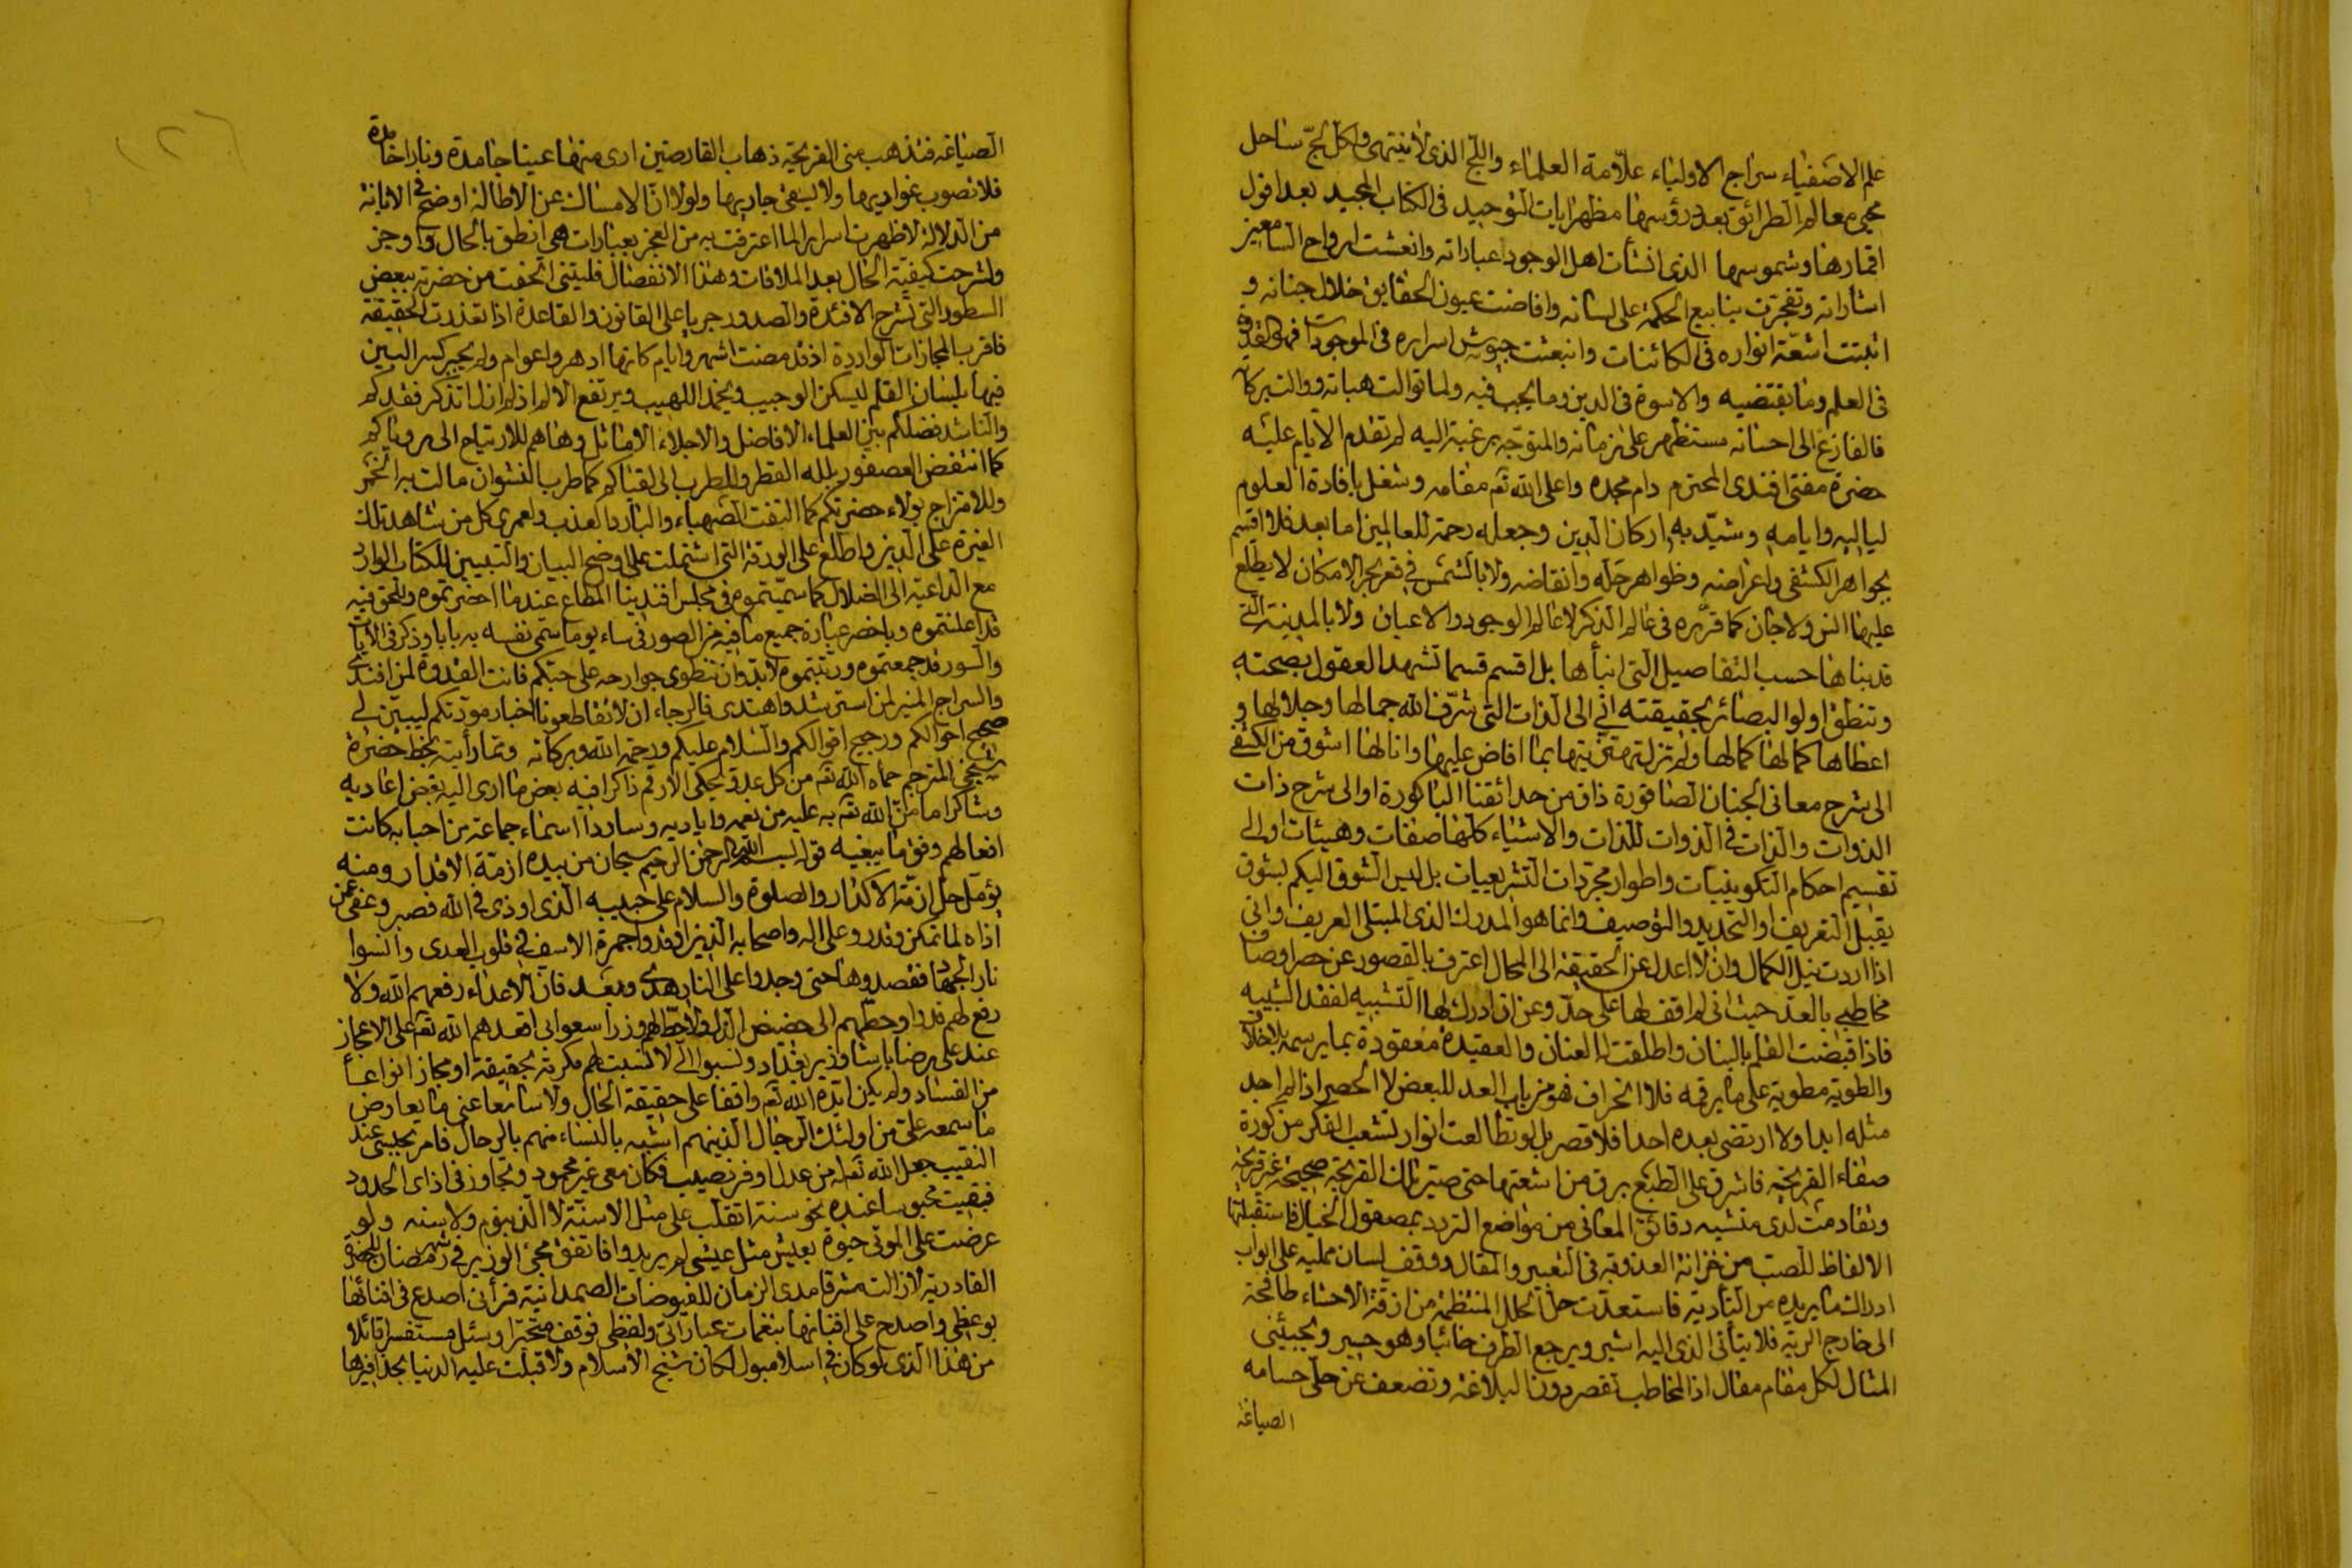 علم الاصفياء سراج الاولياء علّامة العلماء واللّج الذى لا ينتهى ولكل لجّ ساحل
محيى معالم الطرائق بعد دروسها مظهر ايات التوحيد فى الكتاب المجيد بعد افول
اقمارها وشموسها الذى انشأت اهل الوجود عباراته وانعشت ارواح السامعين
اشاراته وتفجرت ينابيع الحكمة على لسانه وافاضت عيون الحقايق خلال جنانه و
اثبتت اشعّة انواره فى الكائنات وانبعثت جيوش اسراره فى الموجودات فهو القدوة
فى العلم وما يقتضيه والاسوة فى الدين وما يجب فيه ولما توالت هباته ووالت بركاته
فالفازع الى احسانه مستظهر على زمانه والمتوجّه برغبة اليه لم تقدم الايام عليه
حضرة مفتى افندى المحترم دام مجده واعلى الله تعه مقامه وشغل بافادة العلوم
لياليه وايامه وشيّد به اركان الدين وجعله رحمة للعالمين اما بعد فلا اقسم
بجواهر الكشفى واعراضه وظواهر حله وانقاضه ولا بالشمس فى قعر بحر الامكان لا يطلع
عليها انس ولا جان كما قرّره فى عالم الذكر لا عالم الوجود والاعيان ولا بالمدينة التى
قد بناها حسب التفاصيل التى انبأها بل اقسم قسما تشهد العقول بصحته
وتنطق اولوا البصائر بحقيقته انى الى الذات التى شرّف الله جمالها وجلالها و
اعطاها كمالها كمالها ولم تزل تربيتها بما افاض عليها وانالها اشوق من الكشفى
الى شرح معانى الجنان الصاقورة ذاق من حدائقنا الباكورة او الى شرح ذات
الذوات والذات فى الذوات للذات والاشياء كلها صفات وهيئات او الى
تقسيم احكام التكوينيات واطوار مجرّدات التشريعيات بل ليس الشوق اليكم بشوق
يقبل التعريف او التحديد والتوصيف وانما هو المدرك الذى المبتلى العريف وانى
اذا اردت نيل الكمال وان لا اعدل عن الحقيقة الى المحال اعترف بالقصور عن حصر اوصاف
مخاطبى بالعدّ حيث انى لم اقف لها على حدّ وعن ان ادرك لها التشبيه لفقد الشبيه
فاذا قبضت القلم بالبنان واطلقت له العنان والعقيدة معقودة بما يرسمه بلا خلاف
والطوية مطوية على ما يرقمه فلا انحراف فهو من باب العد للبعض لا الحصر اذ لم اجد
مثله ابدا ولا ارتضى بعده احدا فلا قصر بل لو تطالعت انوار تشعب الفكر من كورة
صفاء القريحة فاشرق على الطبع برق من اشعتها حتى صيّر تلك القريحة صحيحة غير قريحة
وتقادمت لدى منشيه دقائق المعانى من مواضع التردد بمصقول الخيال فاستقبلتها
الالفاظ للصب من خزانة العذوبة فى التعبير والمقال ووقف لسان ممليه على ابواب
ادراك ما يريده من التأدية فاستعدّت حلّ الحلل المنتظمة من ازقة الاحشاء طافحة
الى خارج الرية فلا يتأتى الذى اليه اشير ويرجع الطرف خائبا وهو حسير ويجيئنى
المثال لكل مقام مقال اذ المخاطب تقصر دونها البلاغة وتضعف عن حلّى حسامه
الصياغة
الصياغه فتذهب منى القريحة ذهاب القارصين ارى منها عينا جامدة ونارا خامدة
فلا تصوب غواديها ولا ليقى جاريها ولولا انّ الامساك عن الاطالة اوضح فى الابانة
من الدلالة لاظهرت اسرارا لما اعترفت به من العجز بعبارات هى انطق بالحال واوجز
ولشرحت كيفيّة الحال بعد الملاقات وهذا الانفصال فليتنى اتحفت من حضرته ببعض
السطور التى تشرح الافئدة والصدور جريا على القانون والقاعدة اذا تعذرت الحقيقة
فاقرب المجازات الواردة اذ قد مضت اشهر وايام كانها ادهر واعوام ولم يجبر كسر البين
فيها بلسان القلم ليسكن الوجيب ويخمد اللهيب ويرتفع الالم اذ لم ازل اتذكر فقدكم
والناشد فضلكم بين العلماء الافاضل والاجلاء الاماثل وهاهم للارتياح الى رؤياكم
كما انتفض العصفور بلله القطر والطرب الى لقياكم كما طرب النشوان مالت به الخمر
وللامتزاج بولاء حضرتكم كما التفت الصهباء والبارد العذب ولعمرى كل من شاهد تلك
الغيرة على الدين واطلع على الورقة التى اشتملت على اوضح البيان والتبيين للكتاب الوارد
مع الداعية الى الضلال كما سمّيتموه فى مجلس افندينا المطاع عندما احضرتموه وللحق فيه
قد اعلنتموه وباخصر عبارة جميع ما فيه من الصور فى ساء يوما سمى نفسه به بابا وذكر فى الآيات
والسور قد جمعتموه ورتبتموه لا بدّ وان تنطوى جوارحه على حبكم فانت القدوة لمن اقتدى
والسراج المنير لمن استرشد واهتدى فالرجاء ان لا تقاطعونا اخبار مودّتكم ليبيّن لى
صحيح احوالكم ورجيح اقوالكم والسلام عليكم ورحمة الله وبركاته ومما رأيته بخط حضرة
شيخى المترجم حماه الله تعه من كل عدوّ يحكى الارقم ذاكرا فيه بعض ما ادى اليه بعض اعاديه
وشاكرا ما منّ الله تعه به عليه من نعمه واياديه وساردا اسماء جماعة من احبابه كانت
افعالهم وفق ما يبغيه قوله بسم الله الرحمن الرحيم سبحان من بيده ازمّة الاقدار ومنه
يؤمل حل ازمّة الاكدار والصلوة والسلام على حبيبه الذى اوذى فى الله فصبر وعفى عن
اذاه لما تمكن وقدر وعلى اله واصحابه الذين اوقدوا جمرة الاسف فى قلوب العدى وانسوا
نار الجهاد فقصدوها حتى وجدوا على النار هدى وبعد فان الاعداء رفعهم الله ولا
رفع لهم قدرا وحطّهم الى حضيض الذل ولا حطّ لهم وزرا سعوا بى اقعدهم الله تعه على الاعجاز
عند على رضا باشا وزير بغداد ونسبوا الى لا نسبت لهم مكرمة بحقيقة او مجاز انواعا
من الفساد ولم يكن ايّده الله تعه واقفا على حقيقة الحال ولا سامعا عنى ما يعارض
ما سمعه على من اولئك الرجال الذين هم اشبه بالنساء منهم بالرجال فامر بحبسى عند
النقيب جعل الله تعه له من عدله اوفر نصيب فكان معى غير محمود وتجاوز فى اذاى الحدود
فبقيت محبوسا عنده نحو سنة اتقلب على مثل الاسنّة لا الذ بنوم ولا بسنه ولو
عرضت على الموتى حيوة بعيش مثل عيشى لم يريدوا فاتفق مجئ الوزير فى شهر رمضان للحضرة
القادرية لا زالت مشرقا مدى الزمان للفيوضات الصمدانية فرأنى اصدع فى افنائها
بوعظى واصدح على افنانها بنغمات عباراتى ولفظى فوقف متحيّرا وسئل مستفسرا قائلا
من هذا الذى لو كان فى اسلامبول لكان شيخ الاسلام ولاقبلت عليه الدنيا بحذافيرها